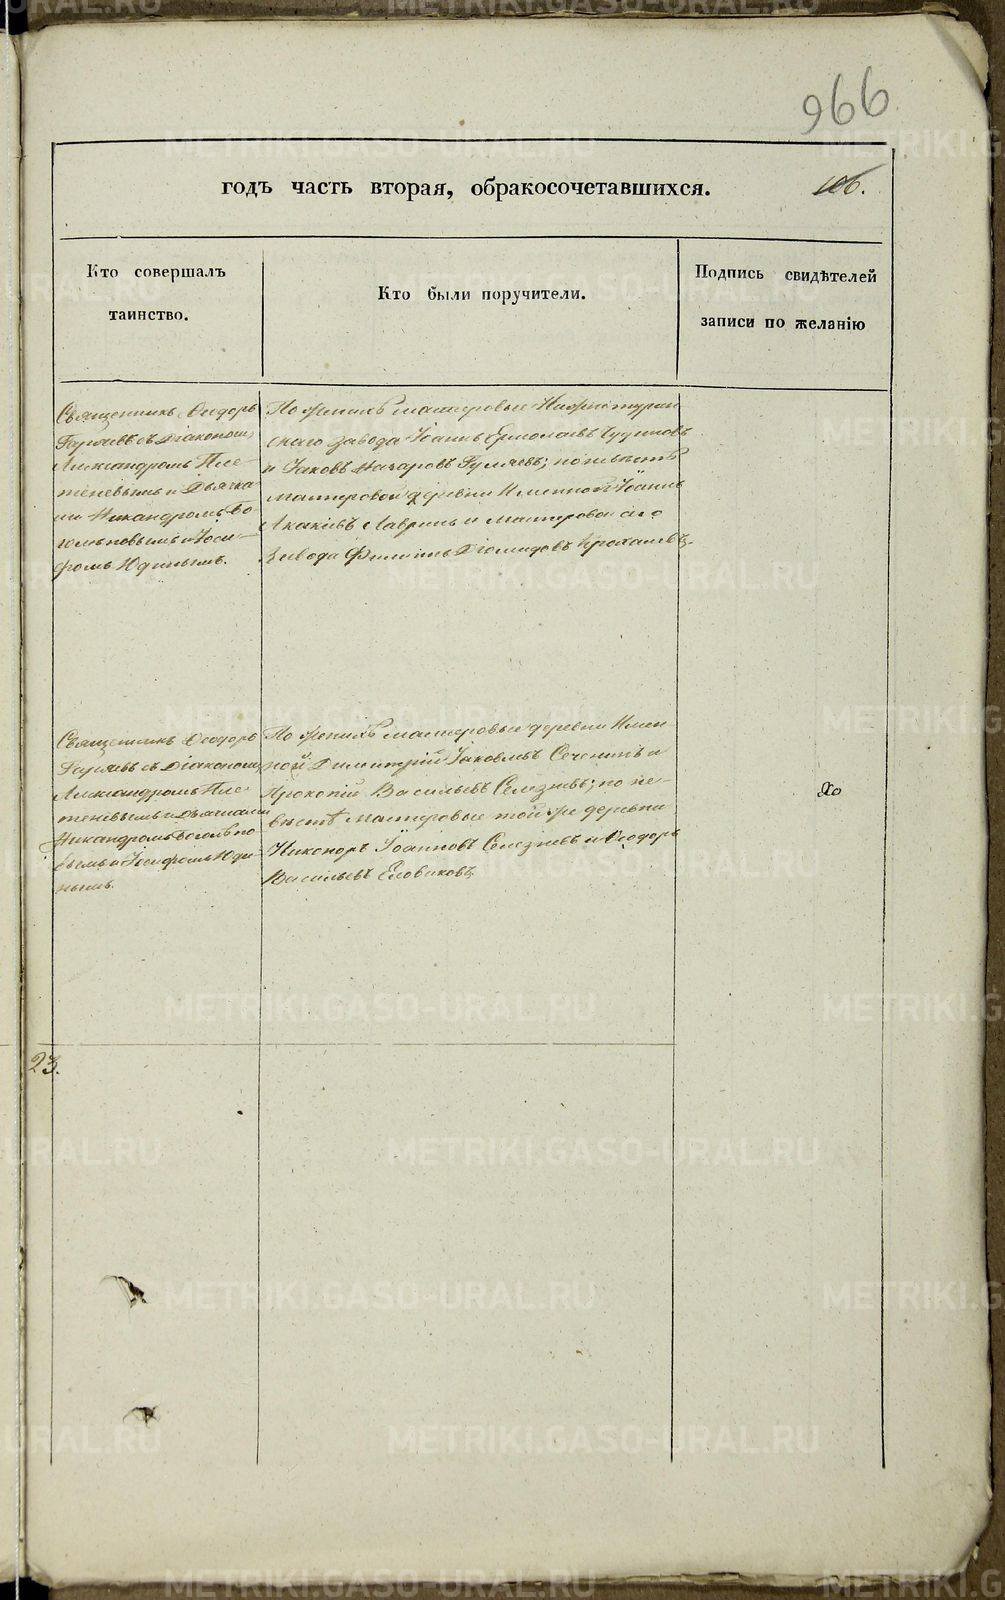 966
годъ часть вторая, обракосочетавшихся.
106.
Кто совершалъ
таинство.
Кто были поручители.
Подпись свидѣтелей
записи по желанію
Священникъ Ѳеодоръ
съ Діакономъ
Александромъ Пле-
теневымъ и Дьячка-
ми Никандромъ Бо-
голѣповымъ и Іоси-
фомъ Юдинымъ.
По женихѣ мастеровые Нижнетурин-
скаго завода Іоаннъ Ермолаевъ Чудиновъ
и Іаковъ Назаровъ Гуляевъ; по невѣстѣ
мастеровой деревни Именной Іоаннъ
Акакіевъ Лавринъ и мастеровой сего
завода Филиппъ Діомидовъ
Священникъ Ѳеодоръ
съ Діакономъ
Александромъ Пле-
теневымъ и дьячками
Никандромъ Боголѣпо-
вымъ и Іосифомъ Юди-
нымъ.
По женихѣ мастеровые деревни Имен-
ной Димитрій Іаковлевъ Сеченинъ и
Прокопій Васильевъ Селезневъ; по не-
вѣстѣ мастеровые той же деревни
Никоноръ Іоанновъ Селезневъ и Ѳеодоръ
Васильевъ Еловиковъ
23.
METRIKI.GASO-URAL.RU